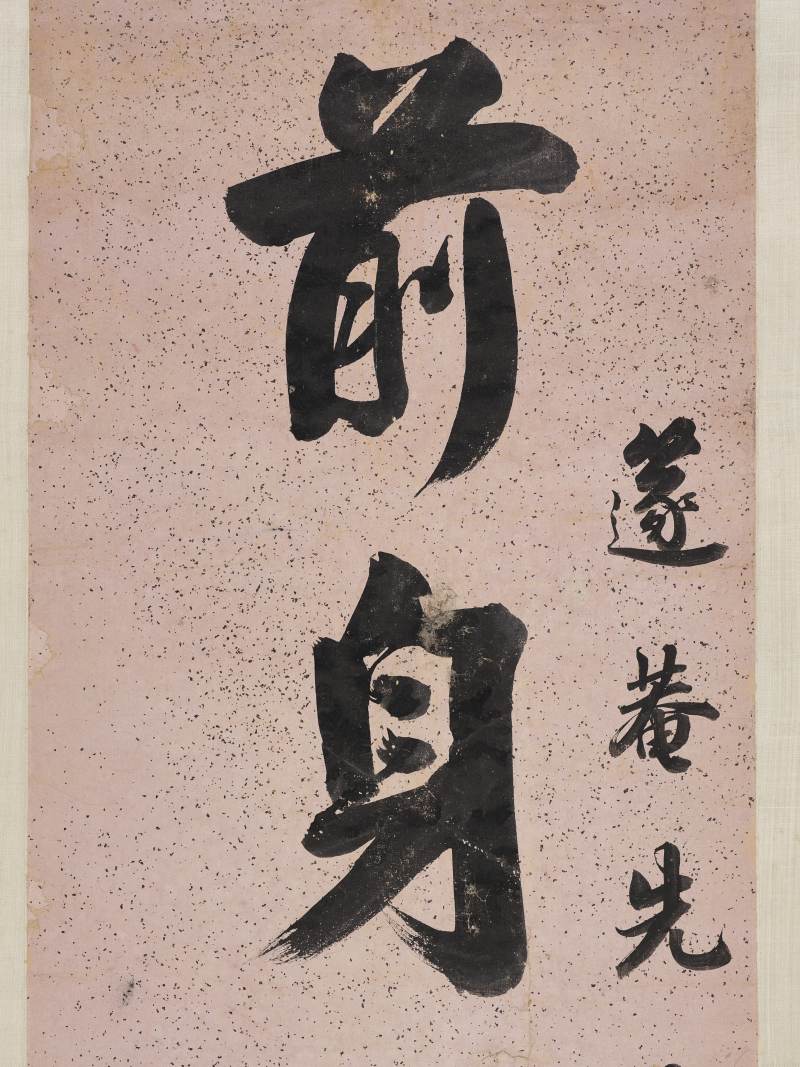 邃菴先
前身